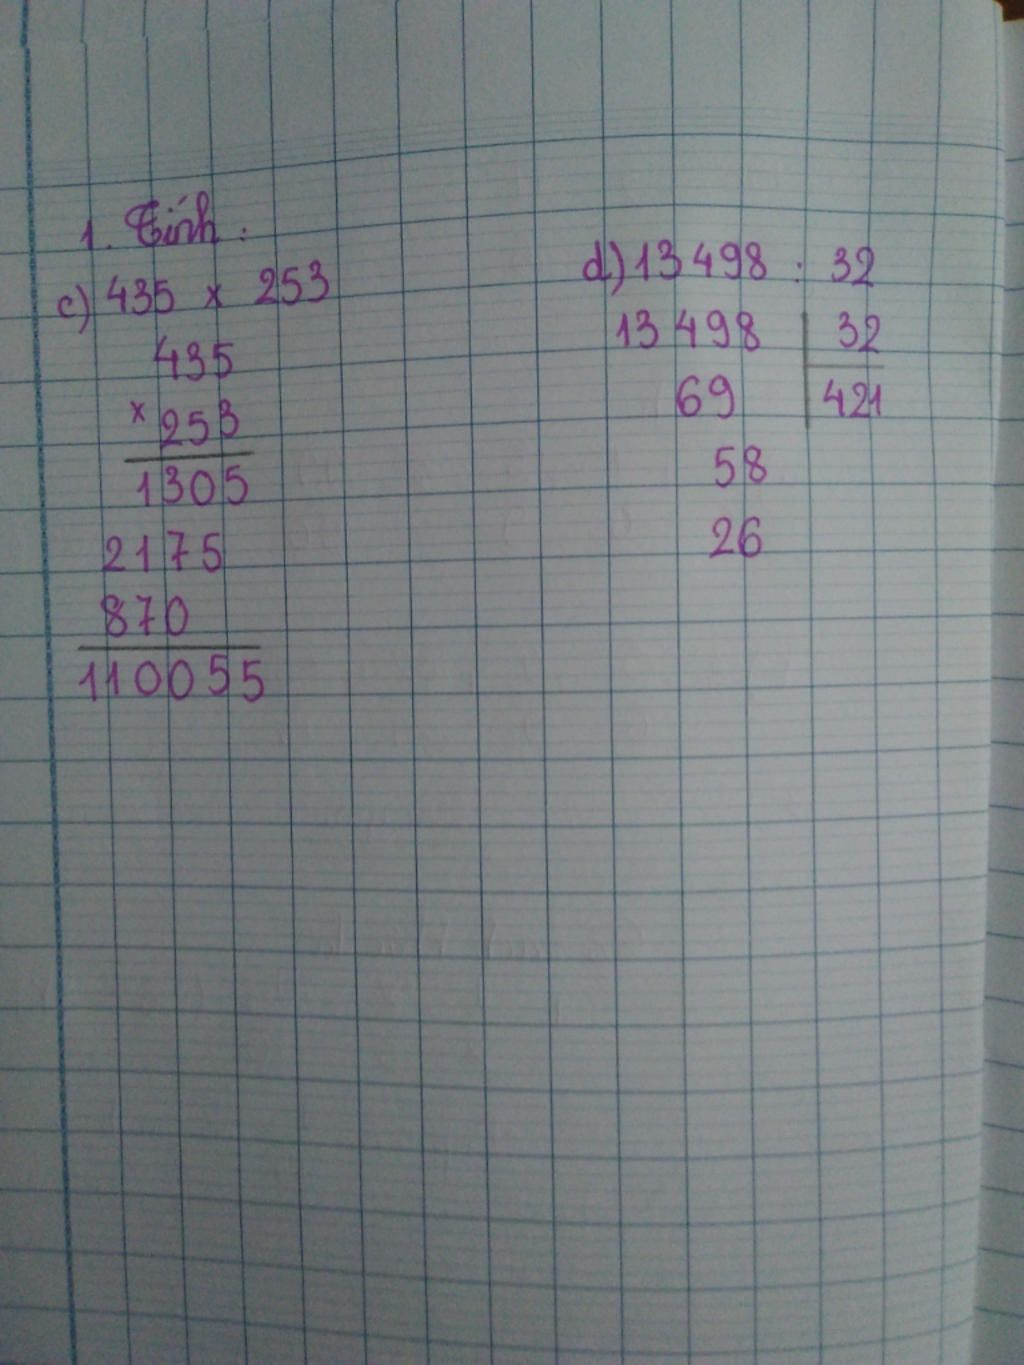 1. Tính:
c) 435 x 253
435
x 253
1305
2175
870
110055
d) 13 498 : 32
13 498 32
69 421
58
26